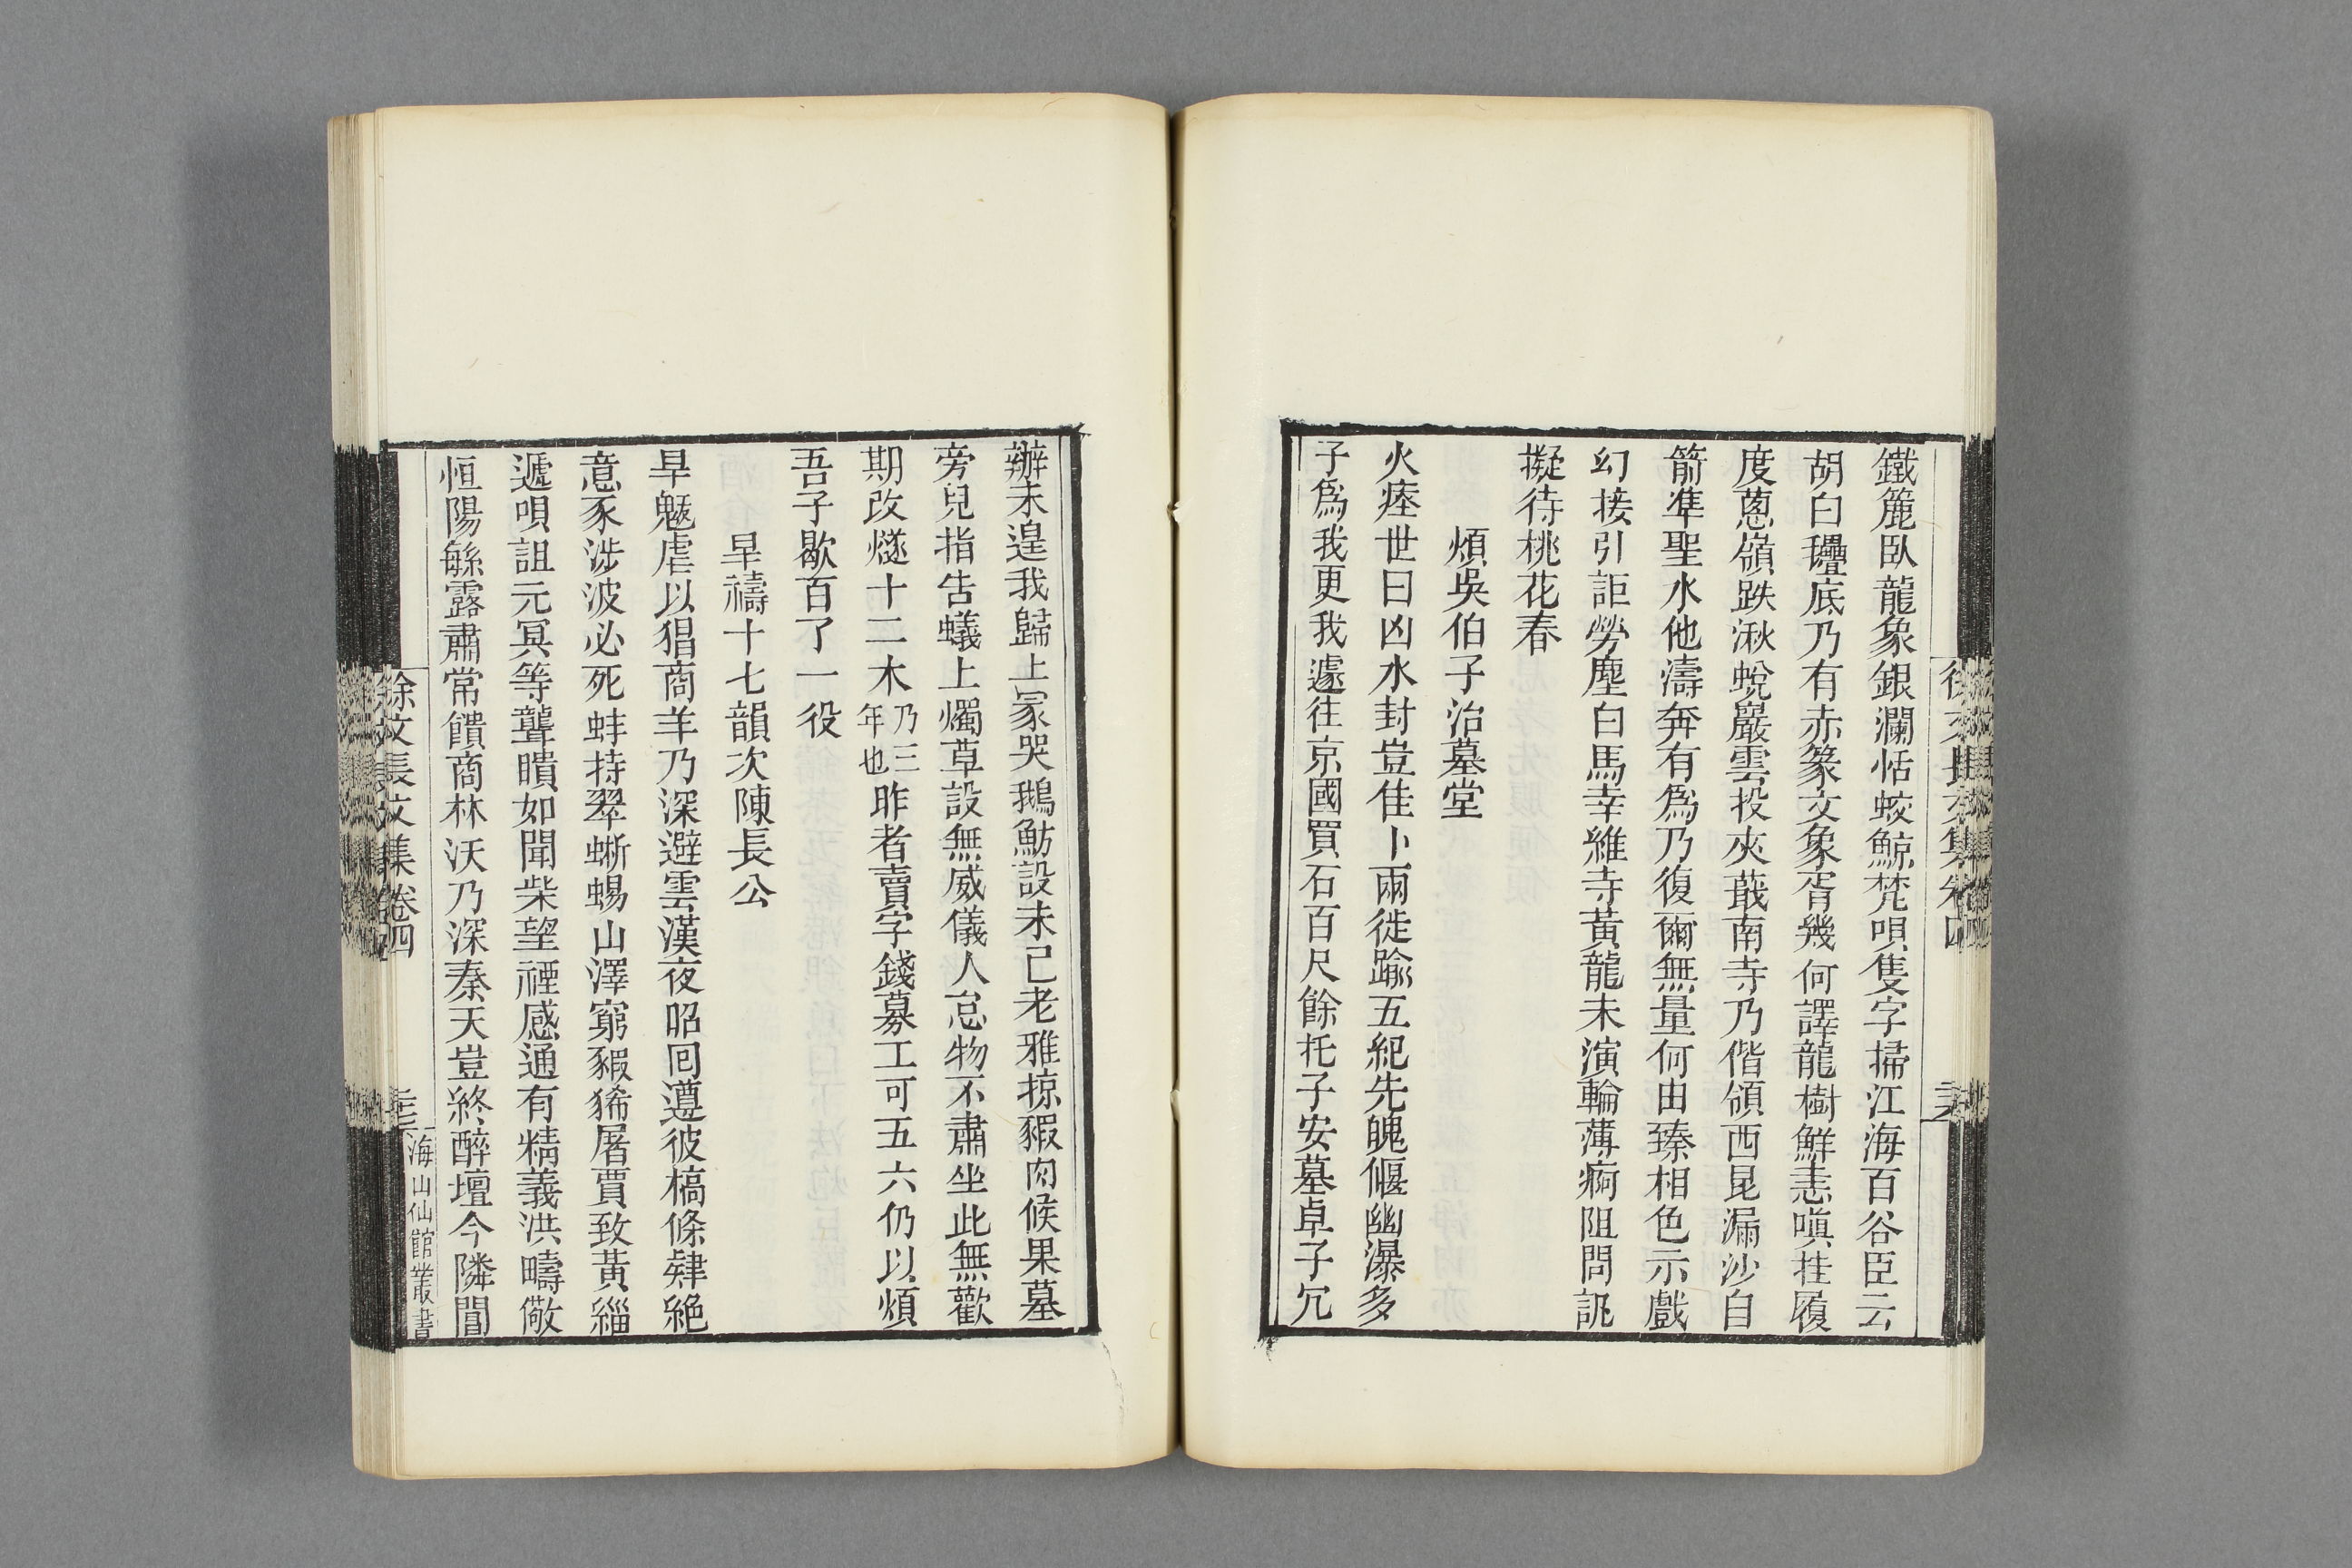 鐵簏臥龍象銀瀾恬蛟鯨梵唄隻字掃江海百谷臣云
胡白㼖底乃有赤篆文象胥幾何譯龍樹鮮恚嗔挂履
度蔥嶺跌湫蛻巖雲投夾蕺南寺乃偕領西昆漏沙自
箭準聖水他濤奔有爲乃復爾無量何由臻相色示戲
幻接引詎勞塵白馬幸維寺黃龍未演輪薄痾阻問訊
擬待桃花春
煩吳伯子治墓堂
火瘞世日凶水封豈佳卜兩徙踰五紀先魄偃幽瀑多
子爲我更我遽往京國買石百尺餘托子安墓卓子冗
徐文長文集卷四
辦未遑我歸上冢哭鵝魴設未已老雅掠豭肉候果墓
旁兒指告蟻上燭草設無威儀人怠物不肅坐此無歡
期改燧十二木乃三年也昨者賣字錢募工可五六仍以煩
吾子歇百了一役
旱禱十七韻次陳長公
旱魃虐以猖商羊乃深避雲漢夜昭回遵彼槁條肄絕
意豕涉波必死蚌持翠蜥蜴山澤窮豭豨屠賈致黃緇
遞唄詛元冥等聾瞶如聞柴望禋感通有精義洪疇儆
恒陽緐露肅常饋商林沃乃深秦天豈終醉壇今隣閭
徐文長文集卷四
海山仙館叢書